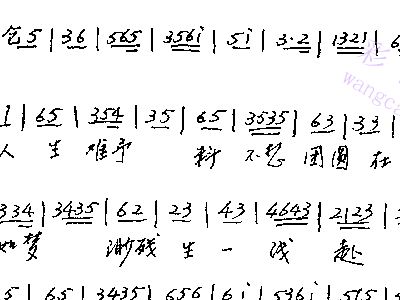 5 | 36 | 565 | 356i | 5i | 3·2 | 1321 | 6
| 65 | 354 | 35 | 65 | 3535 | 63 | 33 |
人 生 难 予 料 不 想 团圆 在
334 | 3435 | 62 | 23 | 43 | 4643 | 2123 |
如梦 渺 生 一 线 赴
5 | 65 | 3435 | 656 | 6i | 536i | 5
wangc